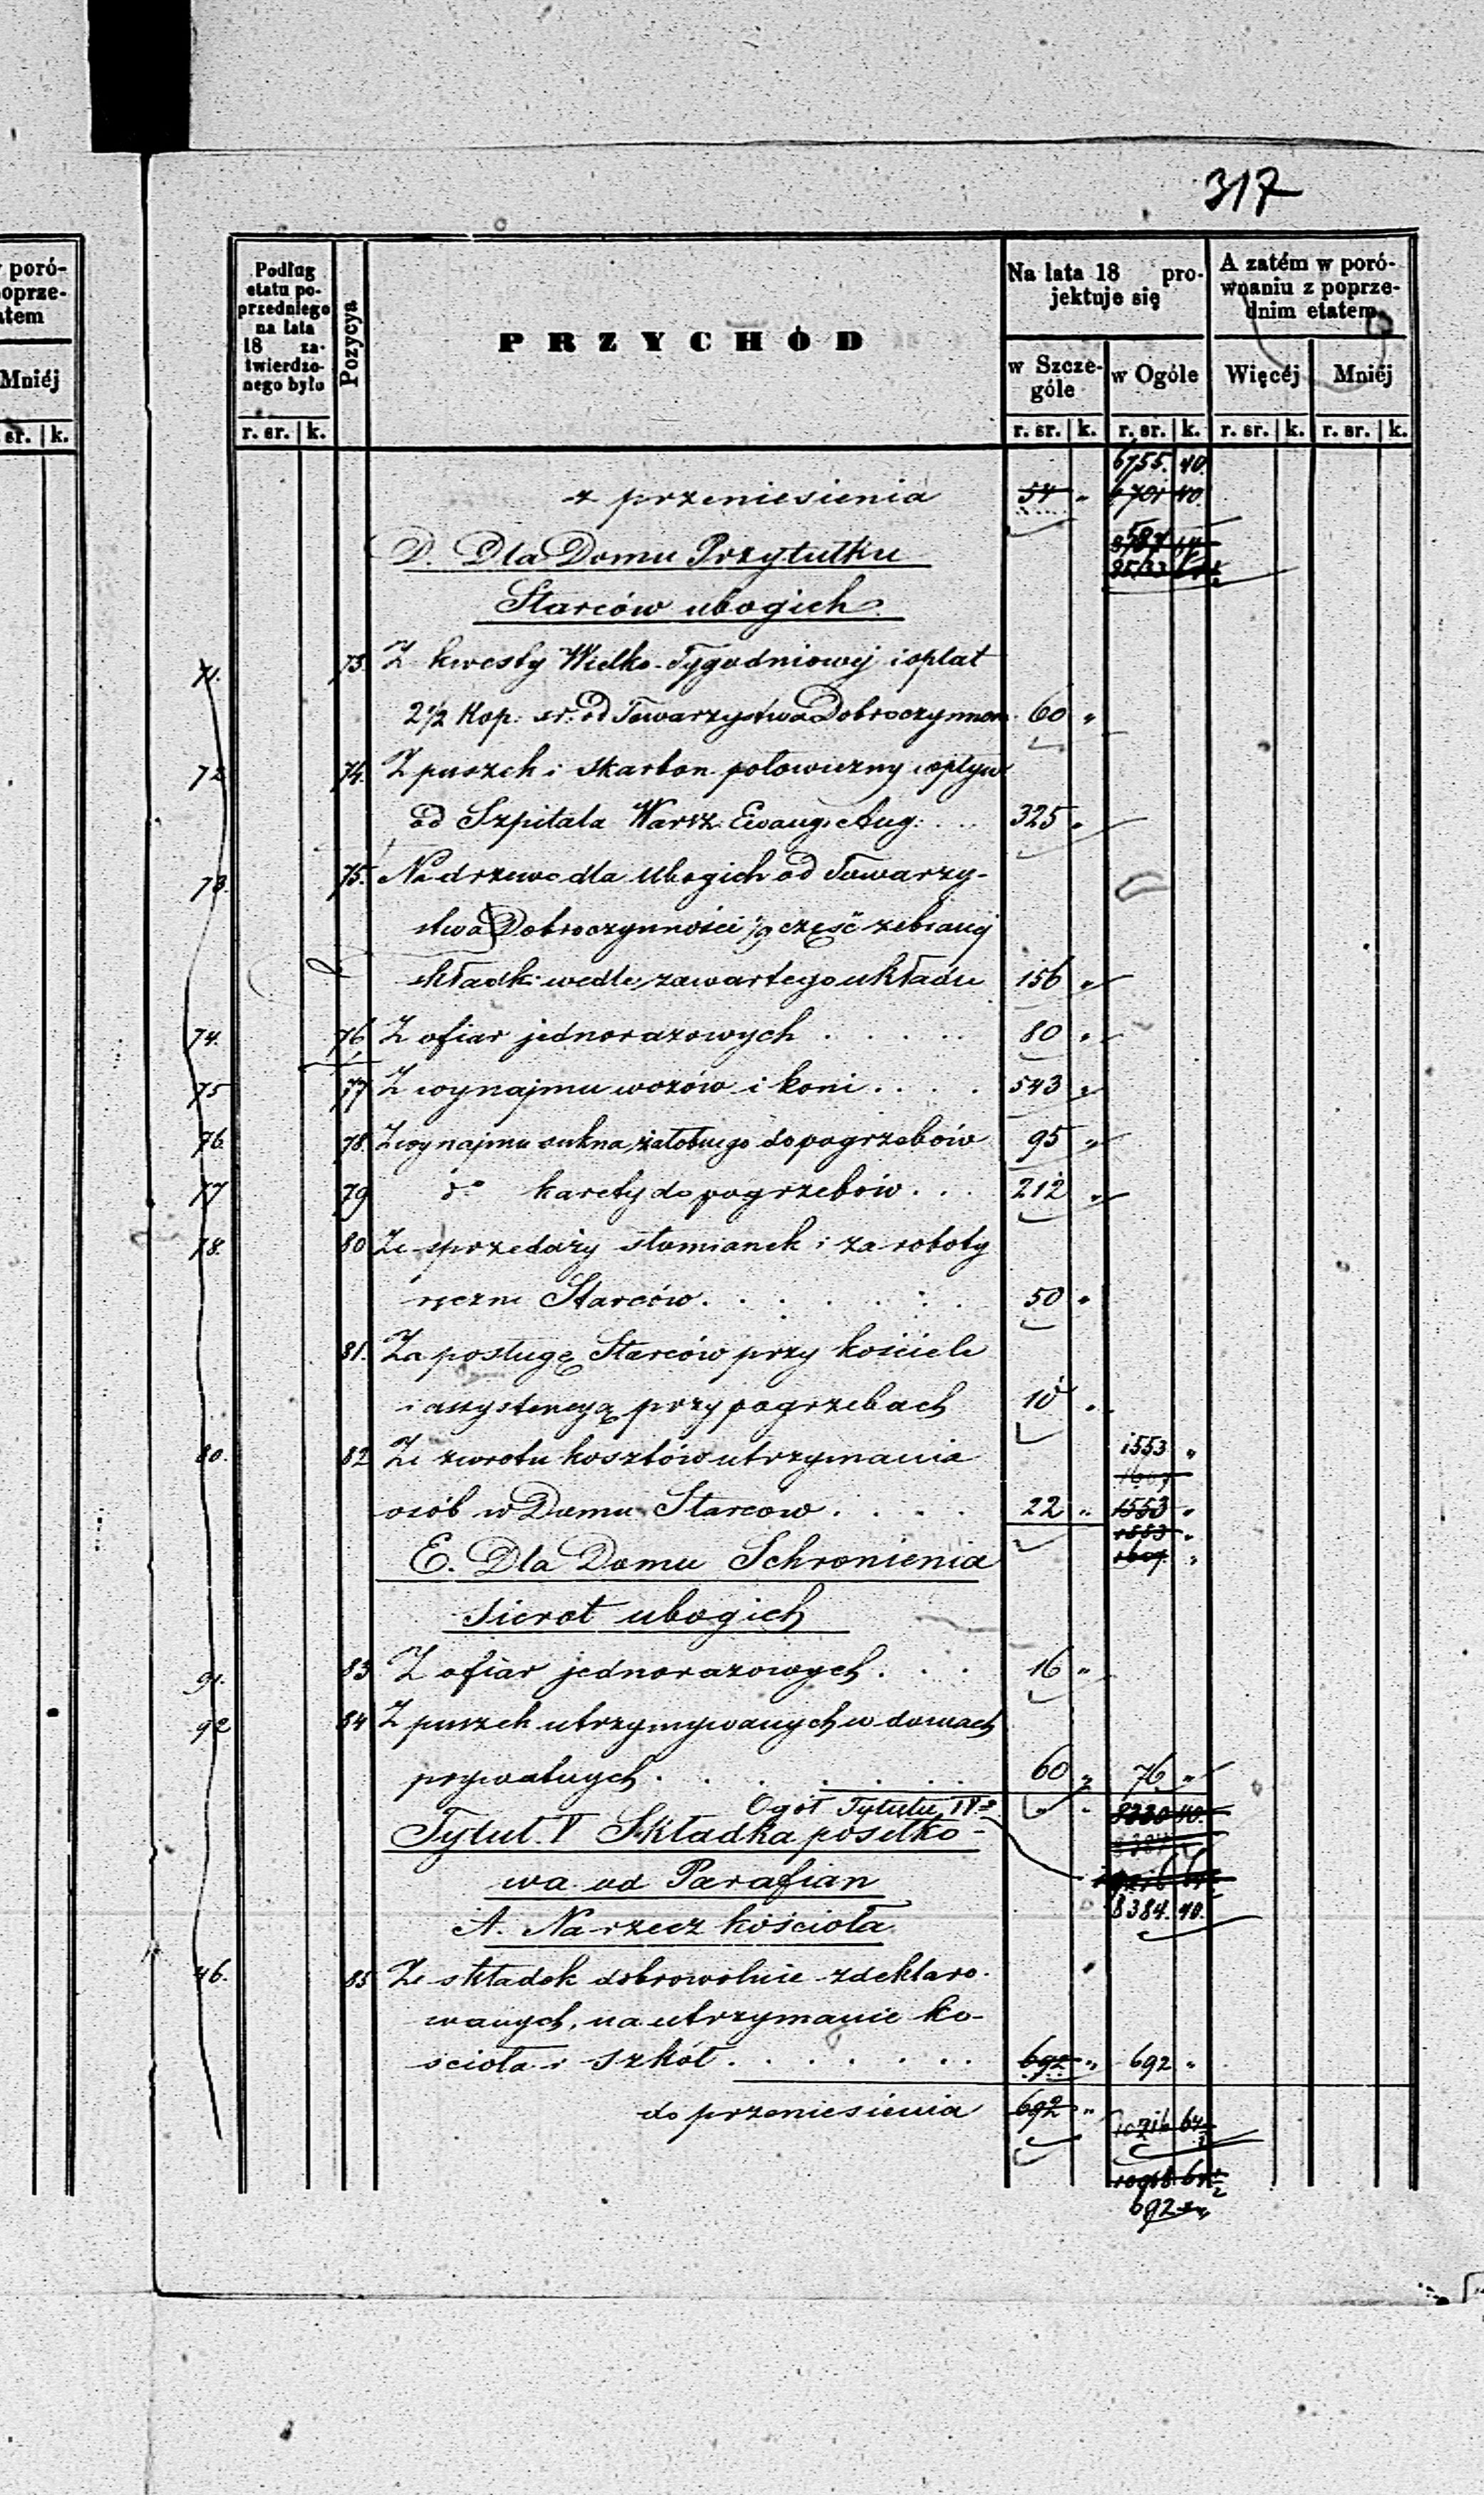 317
poró-
oprze-
atem
Mniéj
sr. k.
Podług etatu poprzedniego na lata 18 zatwierdzonego było
Pozycya
PRZYCHÓD
Na lata 18 projektuje się
A zatém w porównaniu z poprzednim etatem
w Szczególe
w Ogóle
Więcéj
Mniéj
r. sr. k. r. sr. k. r. sr. k. r. sr. k. r. sr. k.
6755. 40.
z przeniesienia 54 " 6701 40.
D. Dla Domu Przytułku
Starców ubogich.
71. 73. Z kwesty Wielko-Tygodniowej i opłat
2 1/2 Kop: sr: od Towarzystwa Dobroczynnom. 60 "
72 74. Z puszek i skarbon połowiczny wpływ
od Szpitala Warsz. Ewang. Aug: . . . 325 "
73. 75. Na drzewo dla Ubogich od Towarzy-
stwa Dobroczynności 1/9 część zebranej
składki wedle zawartego układu 156 "
74. 76. Z ofiar jednorazowych . . . . . 80 "
75 77 Z wynajmu wozów i koni . . . . 543 "
76. 78. Z wynajmu sukna żałobnego do pogrzebów 95 "
77 79 do karety do pogrzebów . . . 212 "
78. 80 Ze sprzedaży słomianek i za roboty
ręczne Starców . . . . . . . 50 "
81. Za posługę Starców przy kościele
i assystencyą przy pogrzebach 10 "
80. 82 Ze zwrotu kosztów utrzymania 1553 "
osób w Domu Starców . . . . 22 " 1553 "
1553 "
1607 "
E. Dla Domu Schronienia
sierot ubogich
91. 83 Z ofiar jednorazowych . . . 16 "
92 84 Z puszek utrzymywanych w domach
prywatnych . . . . . . . 60 " 76 "
Ogół Tytułu IVo 8330 40.
Tytuł. V Składka posiłko-
wa od Parafian
8384. 40.
A. Na rzecz kościoła
46. 85 Ze składek dobrowolnie zdeklaro-
wanych, na utrzymanie ko-
ścioła i szkół . . . . . . . 692 " 692 "
do przeniesienia 692 "
10216 64
10968 64 1/2
692 "